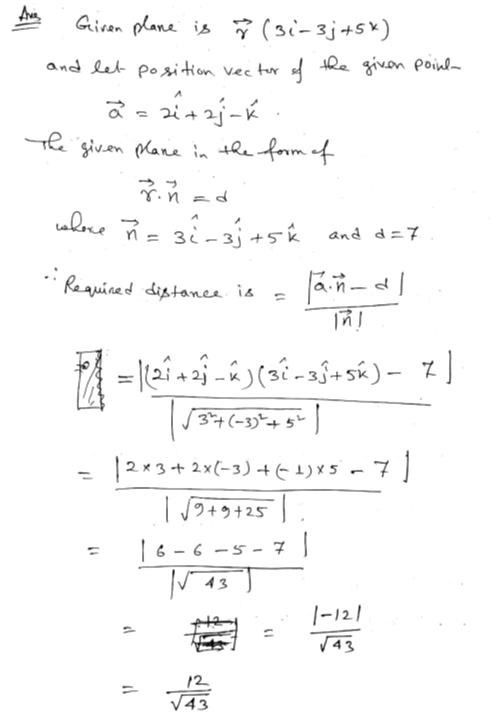 Ans Given plane is r⃗ (3i - 3j + 5k)
and let position vector of the given point
a⃗ = 2î + 2ĵ - k̂ .
The given plane in the form of
r⃗ . n⃗ = d
where n⃗ = 3î - 3ĵ + 5k̂ and d = 7
∴ Required distance is = |a⃗ . n⃗ - d| / |n⃗|
= |(2î + 2ĵ - k̂) (3î - 3ĵ + 5k̂) - 7| / |√3² + (-3)² + 5²|
= |2×3 + 2×(-3) + (-1)×5 - 7| / |√9+9+25|
= |6 - 6 - 5 - 7| / |√43|
= = |-12| / √43
= 12 / √43